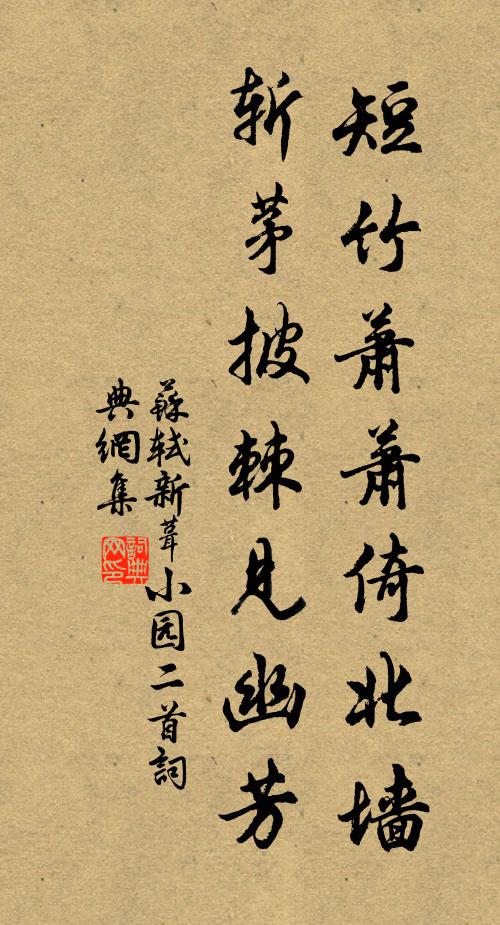 短竹萧萧倚北墙
斩茅披棘见幽芳
蘇轼新葺小园二首詞
典網集
詞典网印